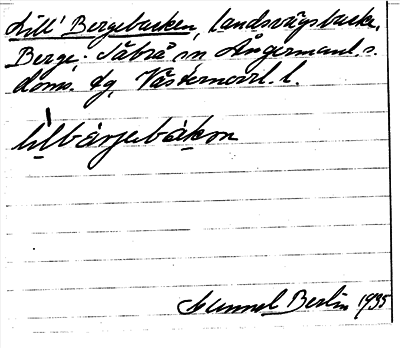 Lill' Bergebacken, landsvägsbacke,
Berge. Säbrå sn Ångermanl. s.
doms. fg, Västernorrl. l.
lìlbärjebàkɐn
Gunnel Berlin 1935